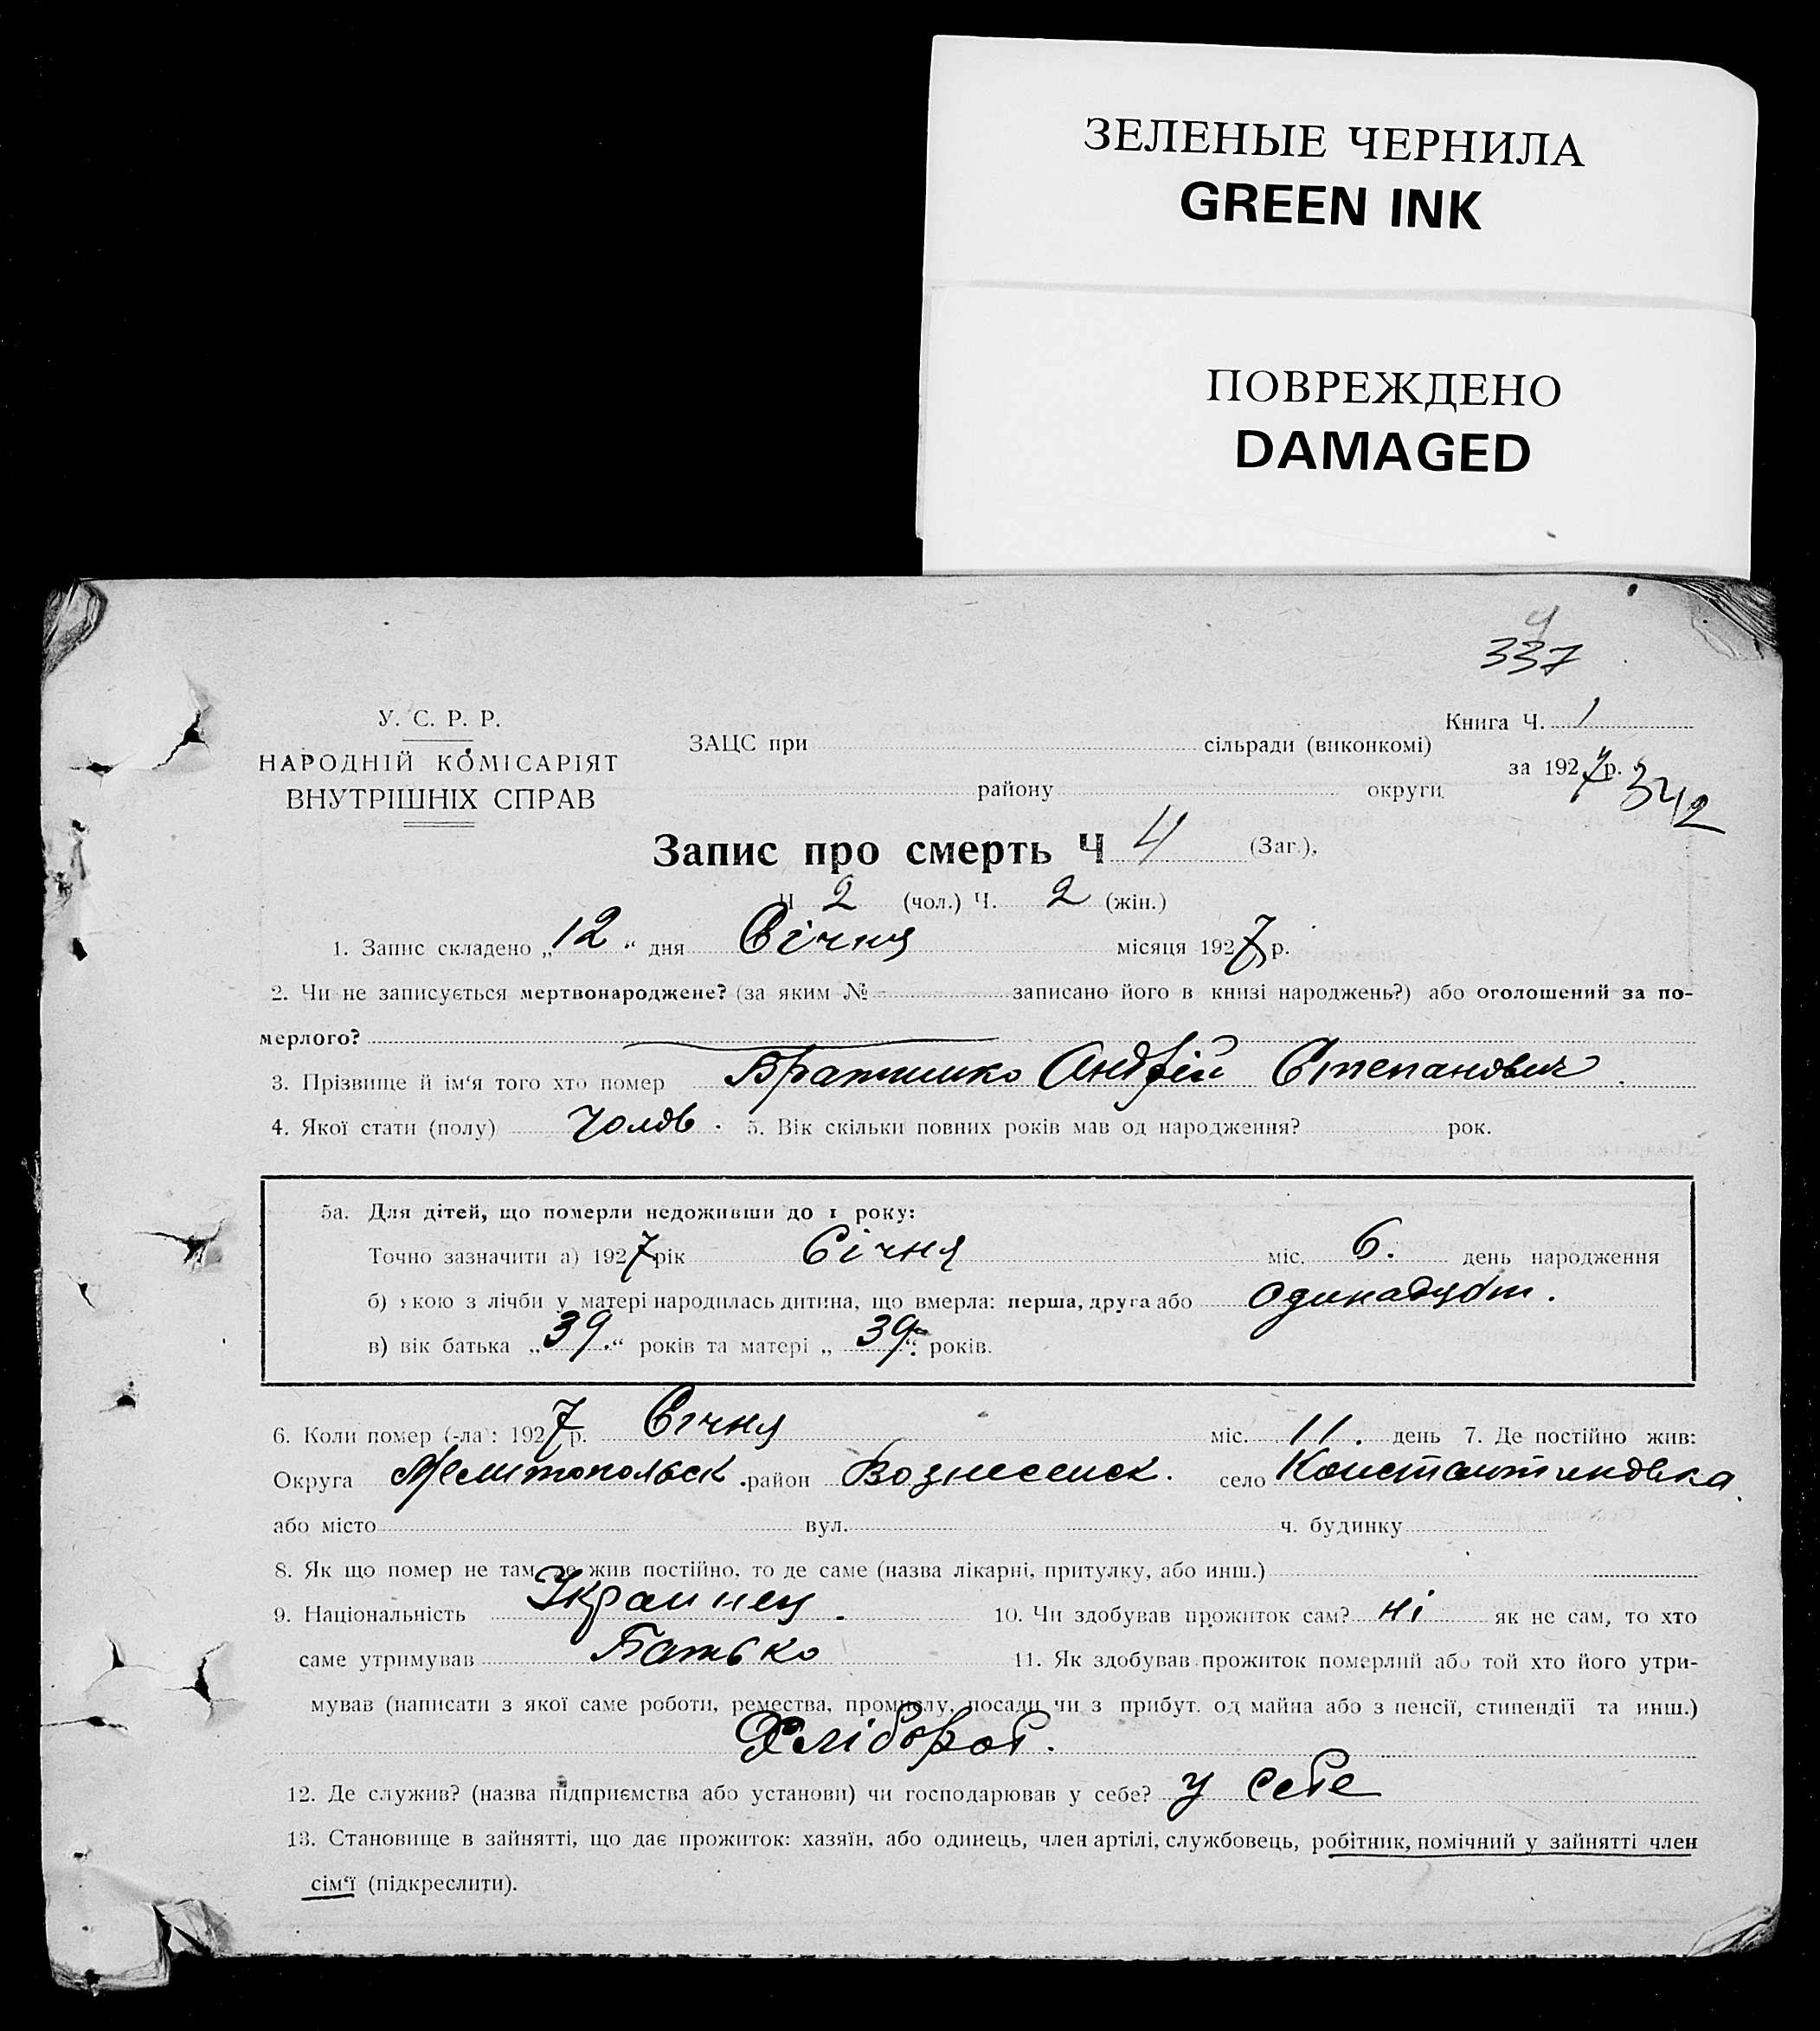 ЗЕЛЕНЫЕ ЧЕРНИЛА
GREEN INK
ПОВРЕЖДЕНО
DAMAGED
4
337
У. С. Р. Р.
НАРОДНІЙ КОМІСАРІЯТ
ВНУТРІШНІХ СПРАВ
Книга Ч. 1
ЗАЦС при сільради (виконкомі)
за 1927 р. 342
району округи
Запис про смерть Ч 4 (Заг.),
Ч 2 (чол.) Ч. 2 (жін.)
1. Запис складено „12“ дня Січня місяця 1927 р.
2. Чи не записується мертвонароджене? (за яким № записано його в книзі народжень?) або оголошений за по-
мерлого?
3. Прізвище й ім‘я того хто помер Братишко Андрій Степанович
4. Якої стати (полу) Чолов. 5. Вік скільки повних років мав од народження? рок.
5а. Для дітей, що померли недоживши до 1 року:
Точно зазначити а) 1927 рік Січня міс. 6. день народження
б) якою з лічби у матері народилась дитина, що вмерла: перша, друга або
в) вік батька „39.“ років та матері „39“. років.
6. Коли помер (-ла): 1927 р. Січня міс. 11. день 7. Де постійно жив:
Округа Мелитопольск. район Вознесенск. село Константиновка.
або місто вул. ч. будинку
8. Як що помер не там, де жив постійно, то де саме (назва лікарні, притулку, або инш.)
9. Національність Украинец. 10. Чи здобував прожиток сам? ні як не сам, то хто
саме утримував Батько 11. Як здобував прожиток померлий або той хто його утри-
мував (написати з якої саме роботи, ремества, промислу, посади чи з прибут. од майна або з пенсії, стипендії та инш.)
Хлібороб.
12. Де служив? (назва підприємства або установи) чи господарював у себе? у себе
13. Становище в зайнятті, що дає прожиток: хазяїн, або одинець, член артілі, службовець, робітник, помічний у зайнятті член
сім‘ї (підкреслити).